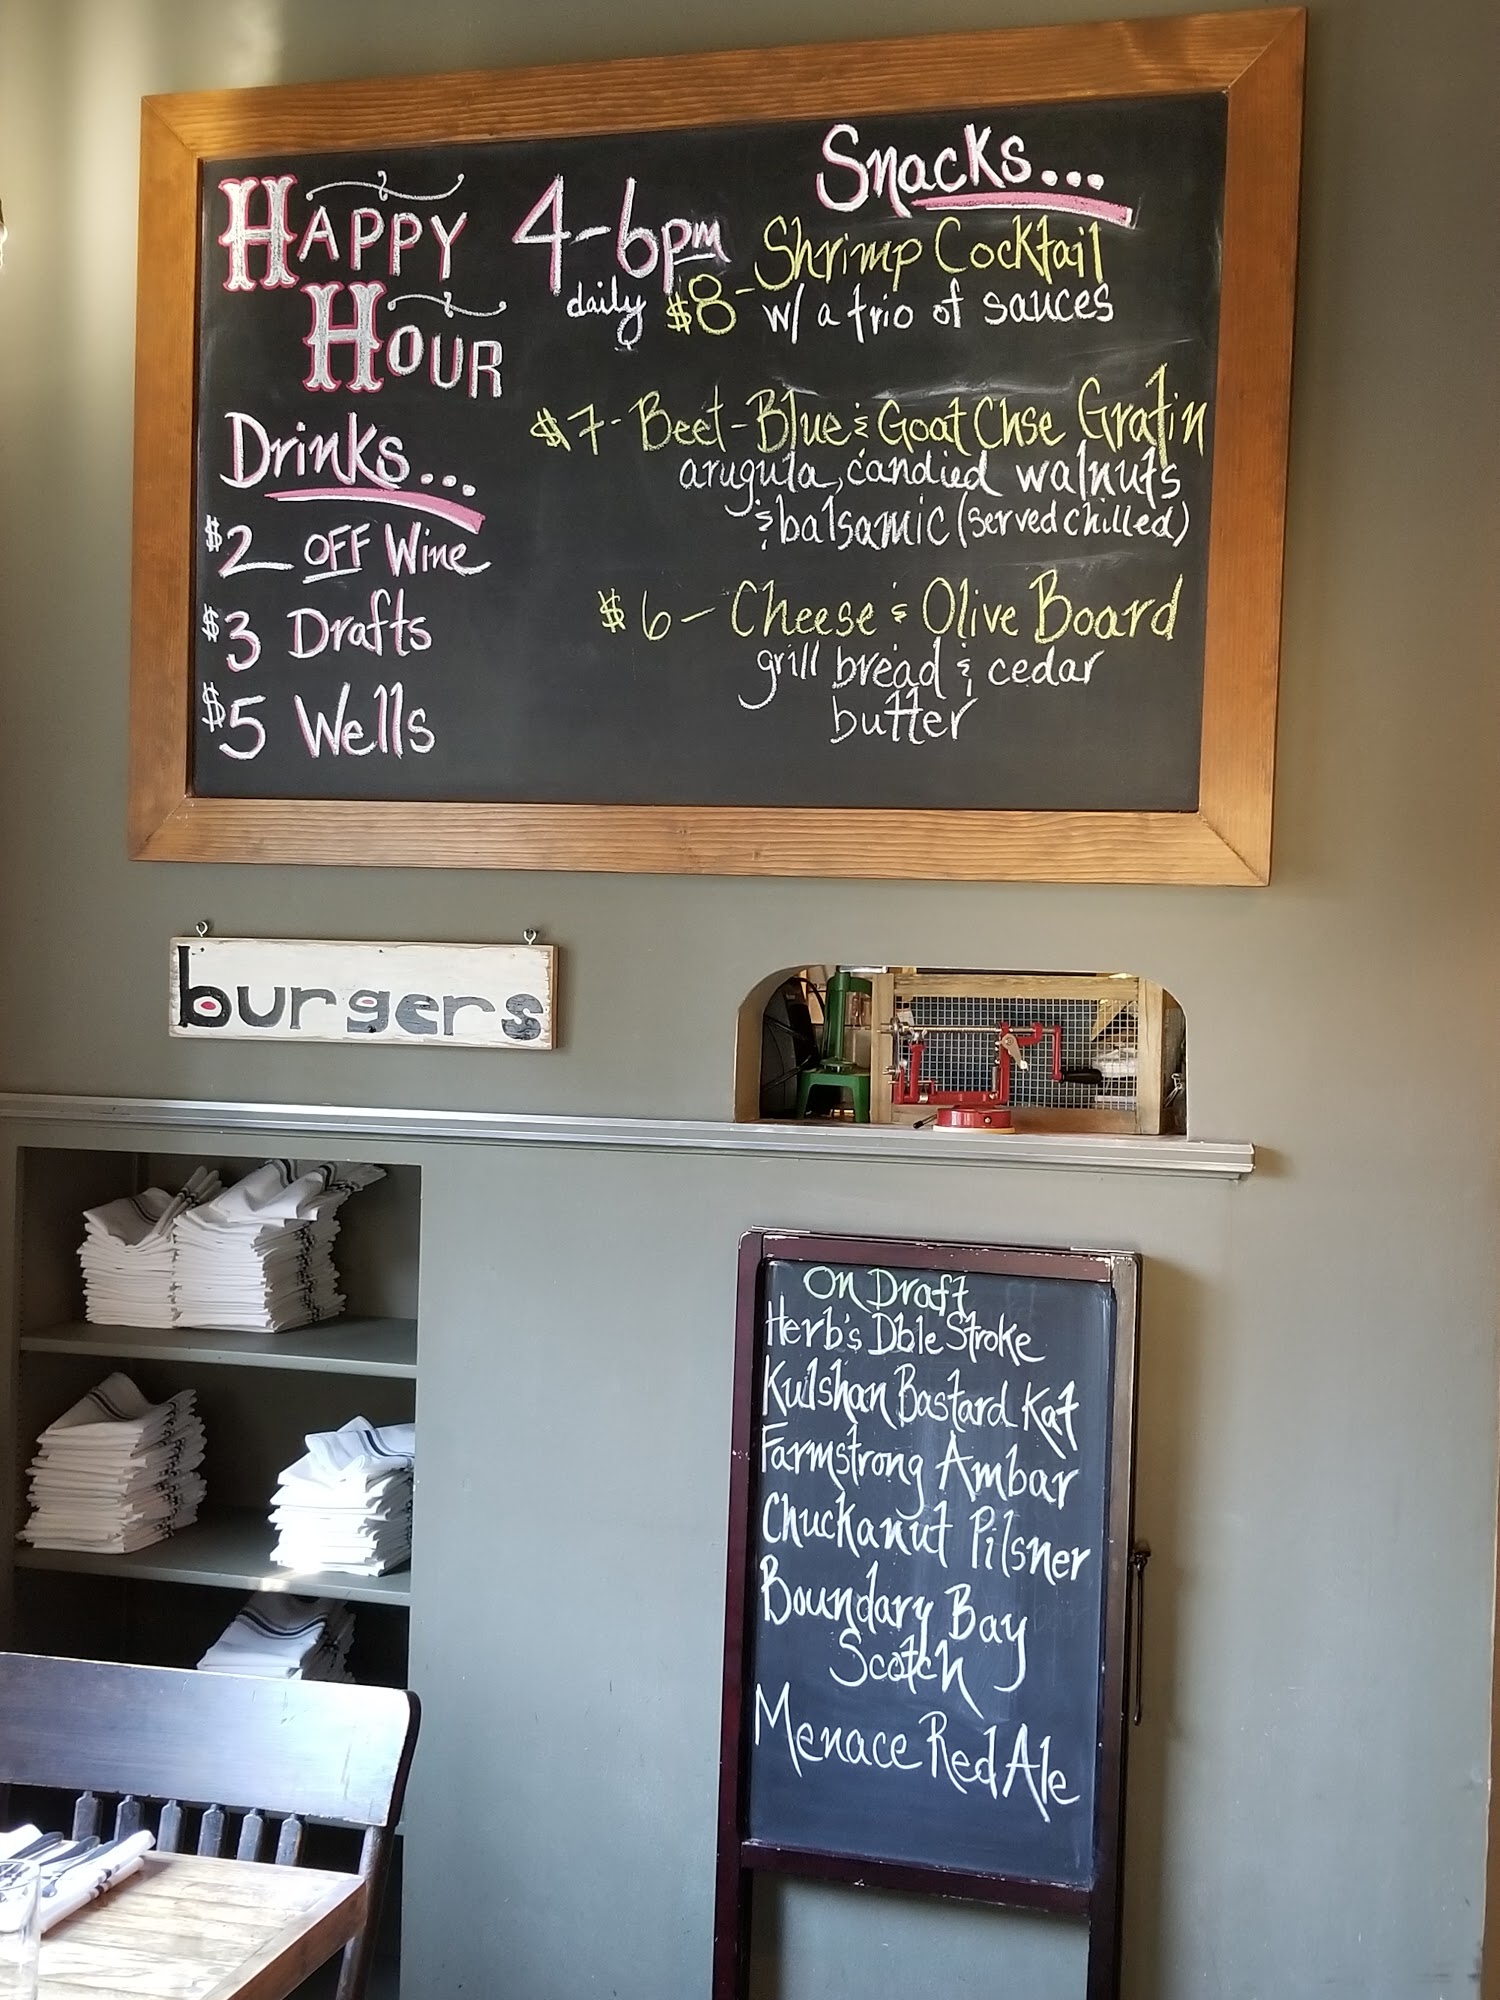 HAPPY
HOUR
4-6pm
daily
Drinks...
$2 OFF Wine
$3 Drafts
$5 Wells
Snacks...
$8 - Shrimp Cocktail
w/ a trio of sauces
$7 - Beet - Blue & Goat Chse Gratin
arugula, candied walnuts
& balsamic (served chilled)
$6 - Cheese & Olive Board
grill bread & cedar
butter
burgers
On Draft
Herb's Dble Stroke
Kulshan Bastard Kat
Farmstrong Ambar
Chuckanut Pilsner
Boundary Bay
Scotch
Menace Red Ale